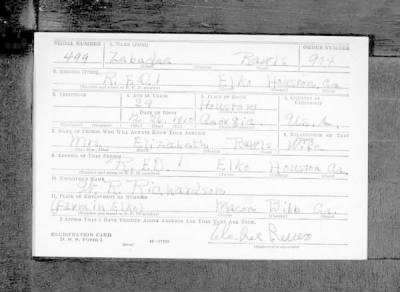 SERIAL NUMBER 1. NAME (Print) ORDER NUMBER
499 Rawls 904
2. ADDRESS (Print)
R.F.D. 1 Elko Houston, Ga.
3. TELEPHONE 4. AGE IN YEARS 5. PLACE OF BIRTH 6. COUNTRY OF CITIZENSHIP
29 Houston
DATE OF BIRTH
1910 Georgia U.S.A.
7. NAME OF PERSON WHO WILL ALWAYS KNOW YOUR ADDRESS 8. RELATIONSHIP OF THAT PERSON
Mrs. Elizabeth Rawls Wife
9. ADDRESS OF THAT PERSON
R.F.D. 1 Elko Houston Ga.
10. EMPLOYER'S NAME
W. R. Richardson
11. PLACE OF EMPLOYMENT OR BUSINESS
(Farm in Elko) Macon Bibb Ga.
I AFFIRM THAT I HAVE VERIFIED ABOVE ANSWERS AND THAT THEY ARE TRUE.
REGISTRATION CARD
D. S. S. Form 1